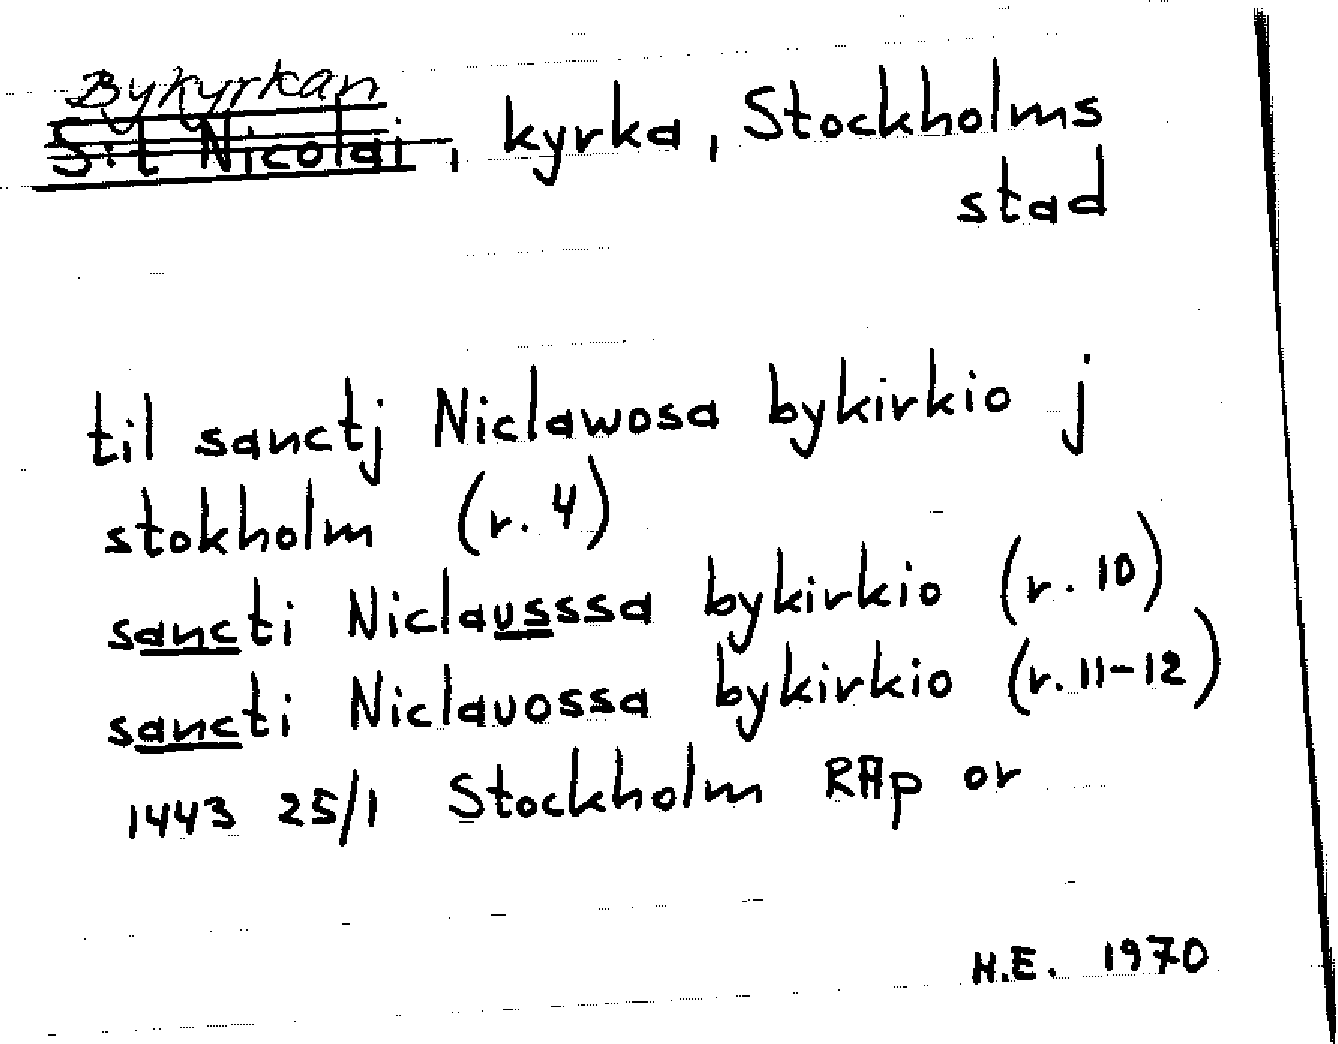 Bykyrkan
S:t Nicolai, kyrka, Stockholms
stad
til sanctj Niclawosa bykirkio j
stokholm (r. 4)
sancti Niclausssa bykirkio (r. 10)
sancti Niclauossa bykirkio (r. 11-12)
1443 25/1 Stockholm RAp or
H.E. 1970